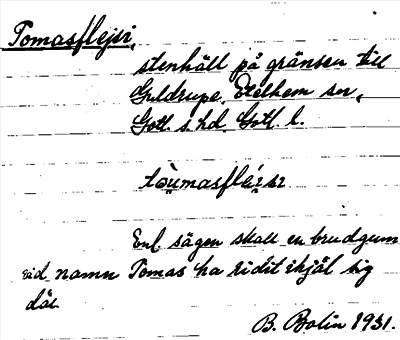 Tomasflejsi,
stenhäll på gränsen till
Guldrupe, Etelhem sn,
Gotl. s. hd. Gotl. l.
Enl. sägen skall en brudgum
vid namn Tomas ha ridit ihjäl sig
där.
B. Bolin 1931.